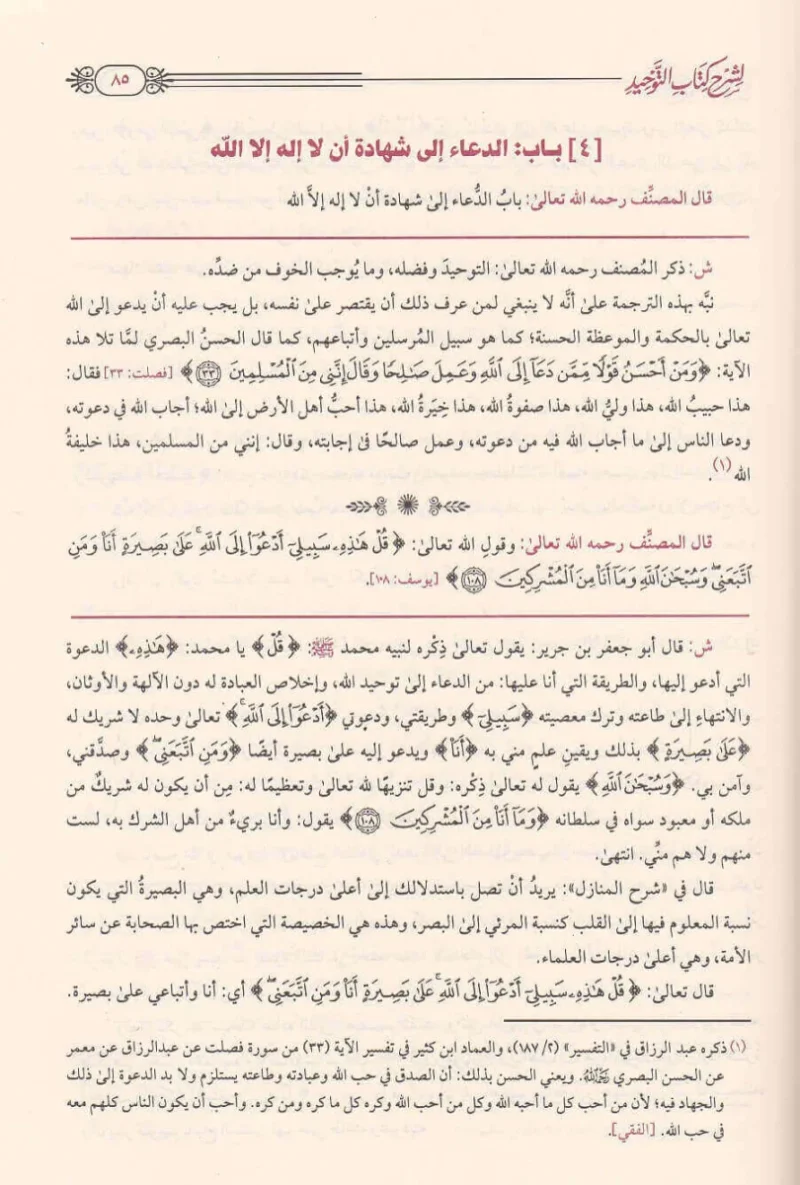 لشرح كتاب التوحيد
٨٥
[٤] باب: الدعاء إلى شهادة أن لا إله إلا الله
قال المصنِّف رحمه الله تعالىٰ: بابُ الدُّعاء إلىٰ شهادة أنْ لا إله إلاَّ الله
ش: ذكر المُصنف رحمه الله تعالىٰ: التوحيدَ وفضله، وما يُوجب الخوف من ضدِّه.
نبَّه بهذه الترجمة علىٰ أنَّه لا ينبغي لمن عرف ذلك أن يقتصر علىٰ نفسه، بل يجب عليه أنْ يدعو إلىٰ الله
تعالىٰ بالحكمة والموعظة الحسنة؛ كما هو سبيل المُرسلين وأتباعهم، كما قال الحسنُ البصري لمَّا تلا هذه
الآية: ﴿وَمَنۡ أَحۡسَنُ قَوۡلٗا مِّمَّن دَعَآ إِلَى ٱللَّهِ وَعَمِلَ صَٰلِحٗا وَقَالَ إِنَّنِي مِنَ ٱلۡمُسۡلِمِينَ ٣٣﴾ [فصلت: ٣٣] فقال:
هذا حبيبُ الله، هذا وليُّ الله، هذا صفوةُ الله، هذا خِيَرةُ الله، هذا أحبُّ أهل الأرض إلىٰ الله؛ أجاب الله في دعوته،
ودعا الناس إلىٰ ما أجاب الله فيه من دعوته، وعمل صالحًا في إجابته، وقال: إنني من المسلمين، هذا خليفةُ
الله(١).
قال المصنِّف رحمه الله تعالىٰ: وقولِ الله تعالىٰ: ﴿قُلۡ هَٰذِهِۦ سَبِيلِيٓ أَدۡعُوٓاْ إِلَى ٱللَّهِۚ عَلَىٰ بَصِيرَةٍ أَنَا۠ وَمَنِ
ٱتَّبَعَنِيۖ وَسُبۡحَٰنَ ٱللَّهِ وَمَآ أَنَا۠ مِنَ ٱلۡمُشۡرِكِينَ ١٠٨﴾ [يوسف: ١٠٨].
ش: قال أبو جعفر بن جرير: يقول تعالىٰ ذِكْره لنبيه محمد ﷺ: ﴿قُلۡ﴾ يا محمد: ﴿هَٰذِهِۦ﴾ الدعوة
التي أدعو إليها، والطريقة التي أنا عليها: من الدعاء إلىٰ توحيد الله، وإخلاص العبادة له دون الآلهة والأوثان،
والانتهاءِ إلىٰ طاعته وترك معصيته ﴿سَبِيلِيٓ﴾ وطريقتي، ودعوتي ﴿أَدۡعُوٓاْ إِلَى ٱللَّهِۚ﴾ تعالىٰ وحده لا شريك له
﴿عَلَىٰ بَصِيرَةٍ﴾ بذلك ويقينِ علمٍ مني به ﴿أَنَا۠﴾ ويدعو إليه علىٰ بصيرة أيضًا ﴿وَمَنِ ٱتَّبَعَنِيۖ﴾ وصدَّقني،
وآمن بي. ﴿وَسُبۡحَٰنَ ٱللَّهِ﴾ يقول له تعالىٰ ذِكْره: وقل تنزيهًا لله تعالىٰ وتعظيمًا له: مِن أن يكون له شريكٌ من
ملكه أو معبود سواه في سلطانه ﴿وَمَآ أَنَا۠ مِنَ ٱلۡمُشۡرِكِينَ ١٠٨﴾ يقول: وأنا بريءٌ من أهل الشرك به، لست
منهم ولا هم منِّي. انتهىٰ.
قال في «شرح المنازل»: يريدُ أنْ تصل باستدلالك إلىٰ أعلىٰ درجات العلم، وهي البصيرةُ التي يكون
نسبة المعلوم فيها إلىٰ القلب كنسبة المرئي إلىٰ البصر، وهذه هي الخصيصة التي اختص بها الصحابة عن سائر
الأمة، وهي أعلىٰ درجات العلماء.
قال تعالىٰ: ﴿قُلۡ هَٰذِهِۦ سَبِيلِيٓ أَدۡعُوٓاْ إِلَى ٱللَّهِۚ عَلَىٰ بَصِيرَةٍ أَنَا۠ وَمَنِ ٱتَّبَعَنِيۖ﴾ أي: أنا وأتباعي علىٰ بصيرة.
(١) ذكره عبد الرزاق في «التفسير» (٢/ ١٨٧)، والعماد ابن كثير في تفسير الآية (٣٣) من سورة فصلت عن عبدالرزاق عن معمر
عن الحسن البصري رحمه الله. ويعني الحسن بذلك: أن الصدق في حب الله وعبادته وطاعته يستلزم ولا بد الدعوة إلى ذلك
والجهاد فيه؛ لأن من أحب كل ما أحبه الله وكل من أحب الله وكره كل ما كره ومن كره. وأحب أن يكون الناس كلهم معه
في حب الله. [الفقي].